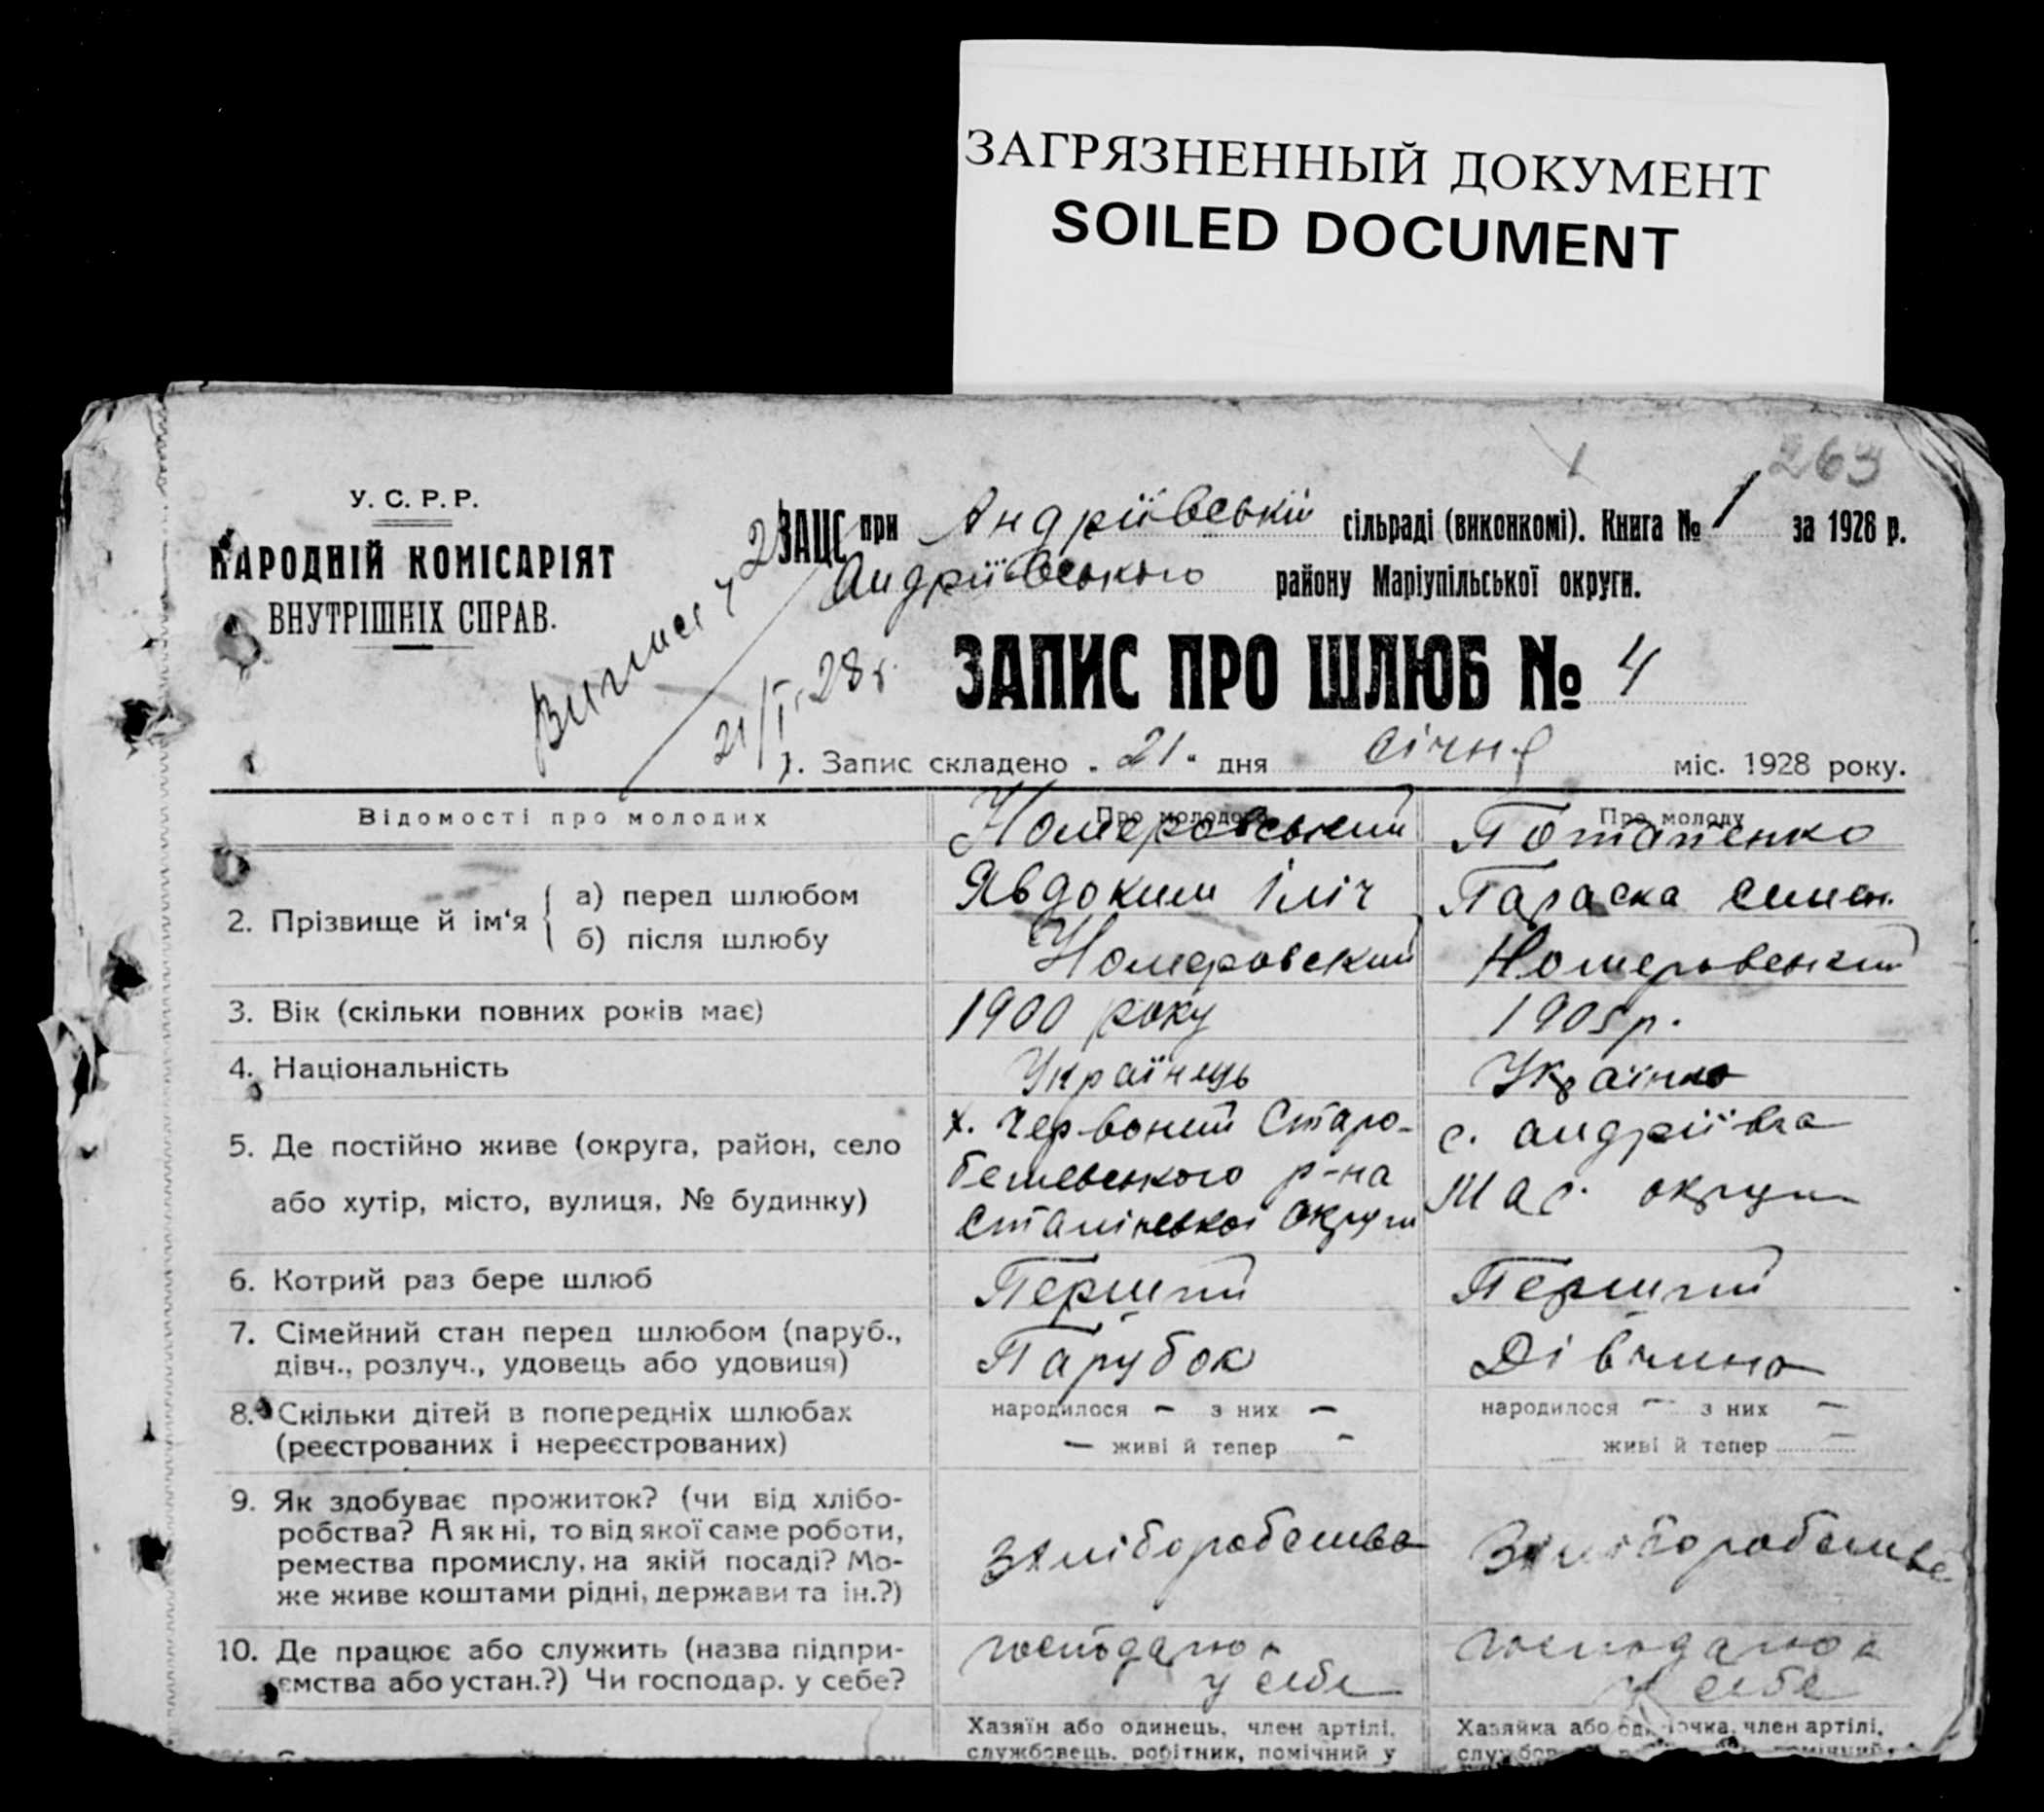 ЗАГРЯЗНЕННЫЙ ДОКУМЕНТ
SOILED DOCUMENT
263
У. С. Р. Р.
НАРОДНІЙ КОМІСАРІЯТ
ВНУТРІШНІХ СПРАВ.
ЗАЦС при Андріївській сільраді (виконкомі). Книга № 1 за 1928 р.
Андріївського району Маріупільської округи.
21/I-28 г.
ЗАПИС ПРО ШЛЮБ № 4
1. Запис складено „21“ дня січня міс. 1928 року.
Відомості про молодих
Про молодого
Про молоду
2. Прізвище й ім‘я
а) перед шлюбом
б) після шлюбу
Номеровський
Явдоким Іліч
Номеровский
Потапенко
Параска Семен.
Номеровський
3. Вік (скільки повних років має)
1900 року
1905 р.
4. Національність
Українець
Українка
5. Де постійно живе (округа, район, село
або хутір, місто, вулиця, № будинку)
х. Червоний Старо-
бешевського р-на
Сталінської округи
с. Андріївка
Мар. округи
6. Котрий раз бере шлюб
Перший
Перший
7. Сімейний стан перед шлюбом (паруб.,
дівч., розлуч., удовець або удовиця)
Парубок
Дівчина
8. Скільки дітей в попередніх шлюбах
(реєстрованих і нереєстрованих)
народилося — з них —
— живі й тепер —
народилося — з них —
живі й тепер —
9. Як здобуває прожиток? (чи від хлібо-
робства? А як ні, то від якої саме роботи,
ремества промислу, на якій посаді? Мо-
же живе коштами рідні, держави та ін.?)
З хліборобства
З хліборобства
10. Де працює або служить (назва підпри-
ємства або устан.?) Чи господар. у себе?
у себе
у себе
Хазяїн або одинець, член артілі,
службовець, робітник, помічний у
Хазяйка або одиночка, член артілі,